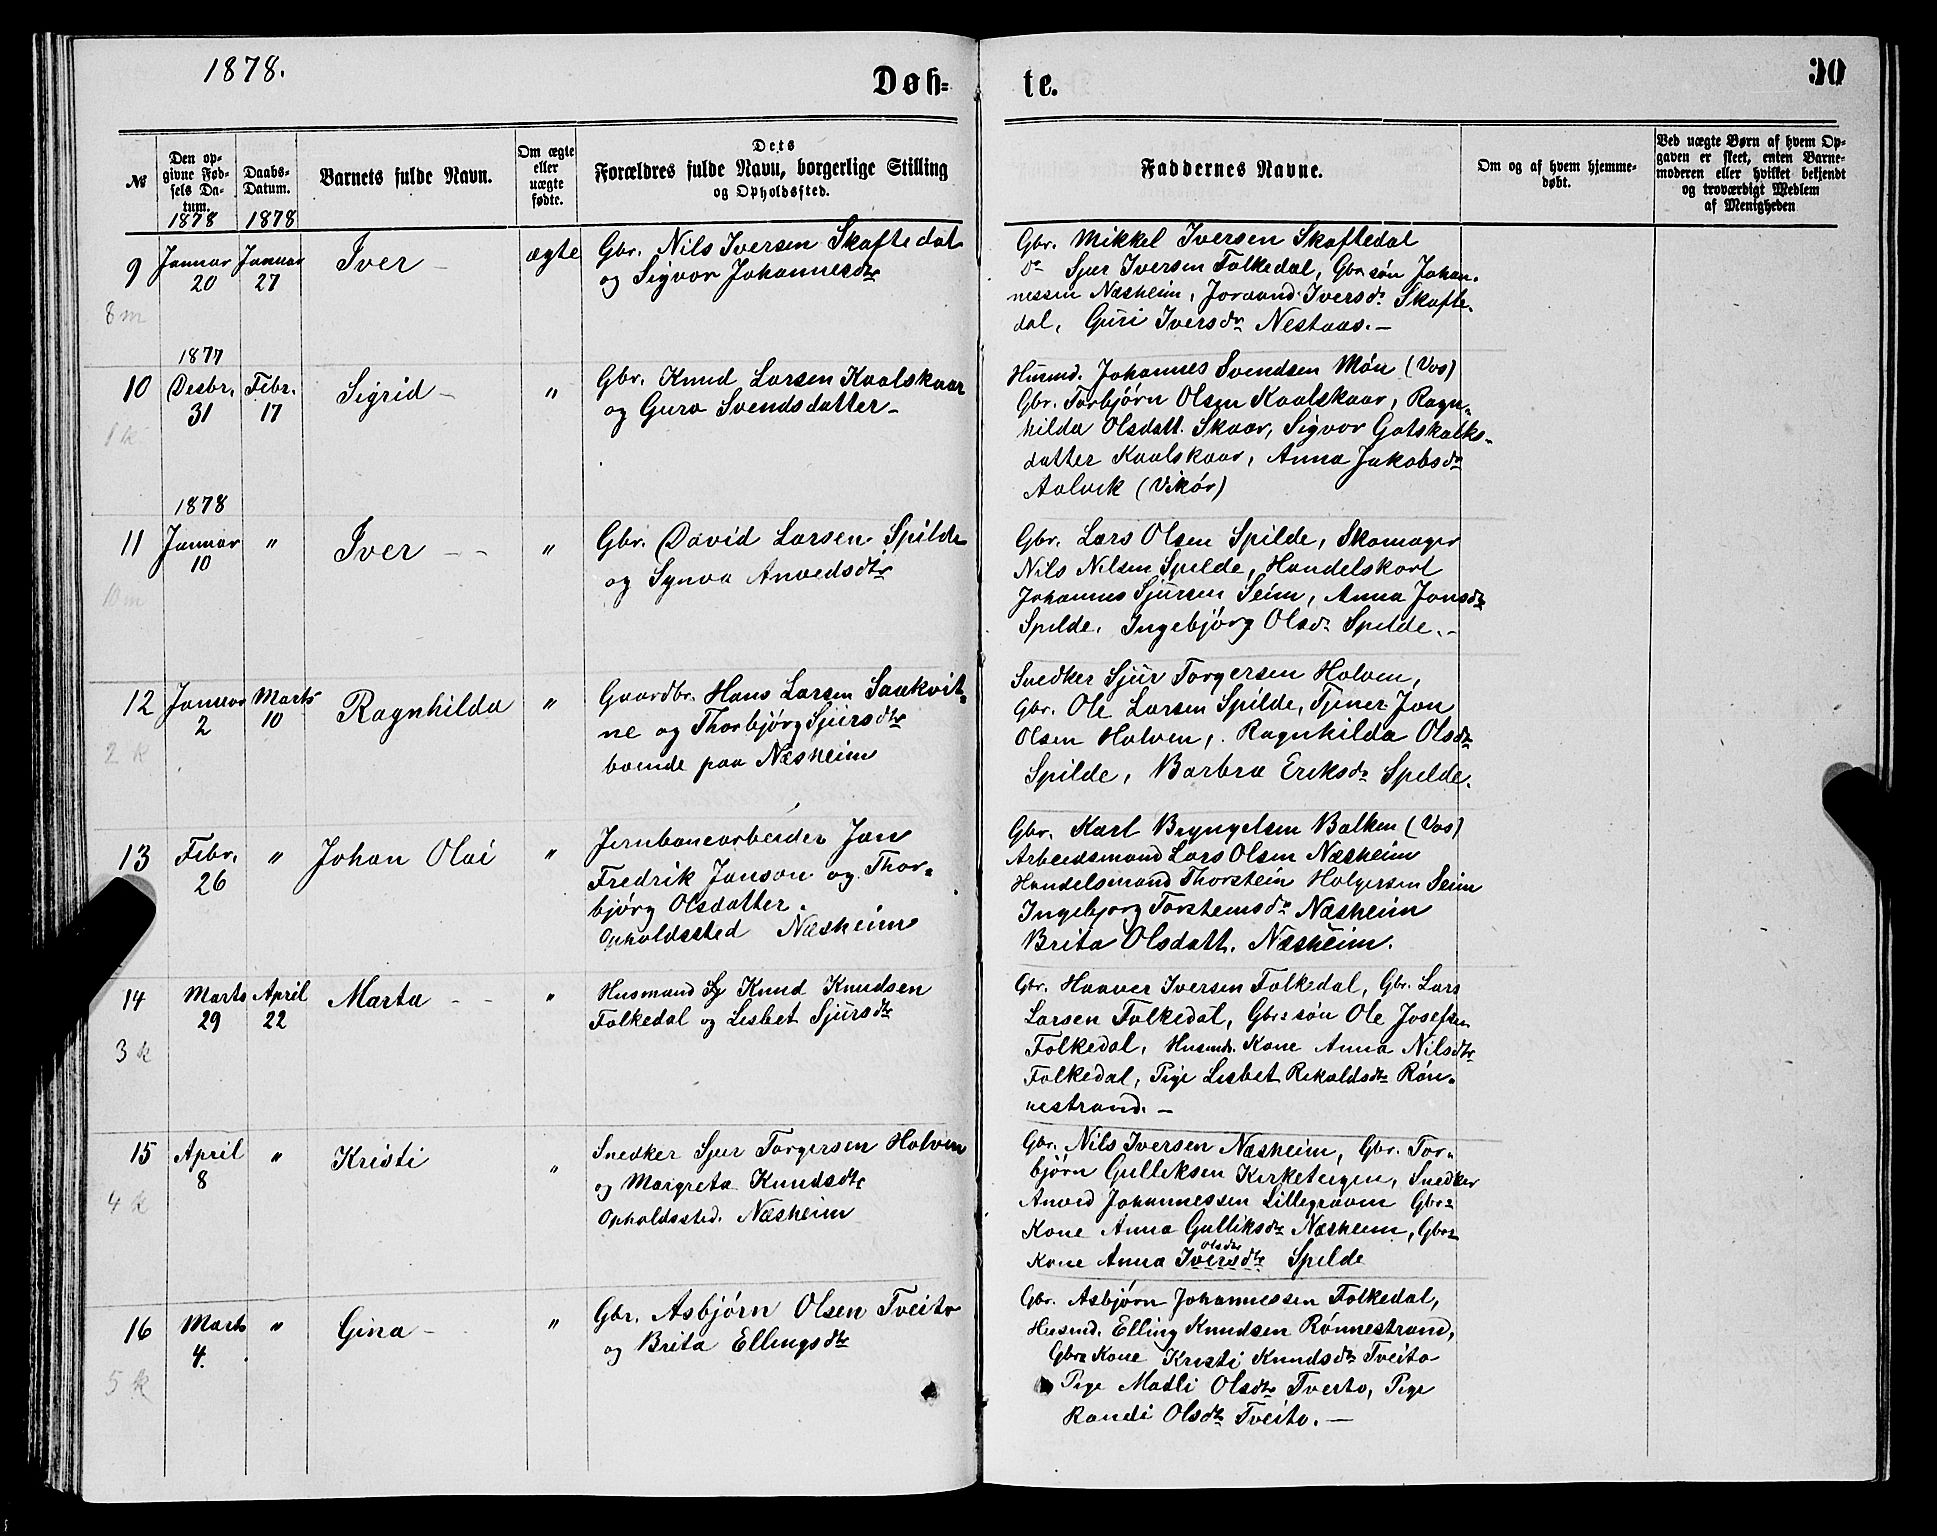 1878.
Døb-
te.
30
№
Den op-
givne Fød-
sels Da-
tum.
1878
Daabs-
Datum.
1878
Barnets fulde Navn.
Om ægte
eller
uægte
fødte.
Dets
Forældres fulde Navn, borgerlige Stilling
og Opholdssted.
Faddernes Navne.
Om og af hvem hjemme-
døbt.
Ved uægte Børn af hvem Op-
gaven er skeet, enten Barne-
moderen eller hvilket bekjendt
og troværdigt Medlem
af Menigheden
9
8 m
Januar
20
Januar
27
Iver -
ægte
Gbr. Nils Iversen Skaftedal
og Sigvor Johannesdtr
Gbr. Mikkel Iversen Skaftedal
do Sjur Iversen Folkedal, Gbr søn Johan-
nessen Næsheim, Joraand Iversdr Skafte-
dal, Guri Iversdr Nestaas. -
10
1 k
1877
Desbr.
31
Febr.
17
Sigrid -
"
Gbr. Knud Larsen Kvalskaar
og Guro Svendsdatter -
Husmd. Johannes Svendsen Møn (Vos)
Gbr. Torbjørn Olsen Kvalskaar, Ragn-
hilda Olsdatt. Skaar, Sigvor Gotskalks-
datter Kvalskaar, Anna Jakobsdr
Aalvik (Vikør)
11
10 m
1878
Januar
10
"
Iver - -
"
Gbr. David Larsen Spilde
og Synva Anvedsdtr
Gbr. Lars Olsen Spilde, Skomager
Nils Nilsen Spilde, Handelskarl
Johannes Sjursen Seim, Anna Jonsdtr
Spilde, Ingebjørg Olsdr Spilde. -
12
2 k
Januar
2
Marts
10
Ragnhilda
"
Gaardbr. Hans Larsen Saakvit-
ne og Thorbjørg Sjursdtr
boende paa Næsheim
Snedker Sjur Torgersen Holven,
Gbr. Ole Larsen Spilde, Tjener Jon
Olsen Holven, Ragnhilda Olsdtr
Spilde, Barbra Eriksdr Spilde.
13
Febr.
26
"
Johan Olai
"
Jernbanearbeider Jan
Fredrik Janson og Thor-
bjørg Olsdatter.
Opholdssted Næsheim
Gbr. Karl Bryngelsen Balken (Vos)
Arbeidsmand Lars Olsen Næsheim
Handelsmand Thorstein Holgersen Seim
Ingebjorg Torsteinsdr Næsheim
Brita Olsdatt. Næsheim.
14
3 k
Marts
29
April
22
Marta - -
"
Husmand Knud Knudsen
Folkedal og Lisbet Sjursdtr
Gbr. Haaver Iversen Folkedal, Gbr. Lars
Larsen Folkedal, Gbr: søn Ole Josefsen
Folkedal, Husmds. Kone Anna Nilsdtr
Folkedal, Pige Lisbet Rikoldsdtr Røn-
nestrand. -
15
4 k
April
8
"
Kristi
"
Snedker Sjur Torgersen Holven
og Margreta Knudsdtr
Opholdssted. Næsheim
Gbr. Nils Iversen Næsheim, Gbr. Tor-
bjørn Gulliksen Kirketeigen, Snedker
Anved Johannessen Lillegraven Gbr:
Kone Anna Gulliksdtr Næsheim, Gbr:
Olsdtr
Kone Anna Iversdtr Spilde
16
5 k
Marts
4.
"
Gina -
"
Gbr. Asbjørn Olsen Tveito
og Brita Ellingsdtr
Gbr. Asbjørn Johannessen Folkedal,
Husmd. Elling Knudsen Rønnestrand,
Gbrs Kone Kristi Knudsdtr Tveito
Pige Madli Olsdtr Tveito, Pige
Randi Olsdtr Tveito. -